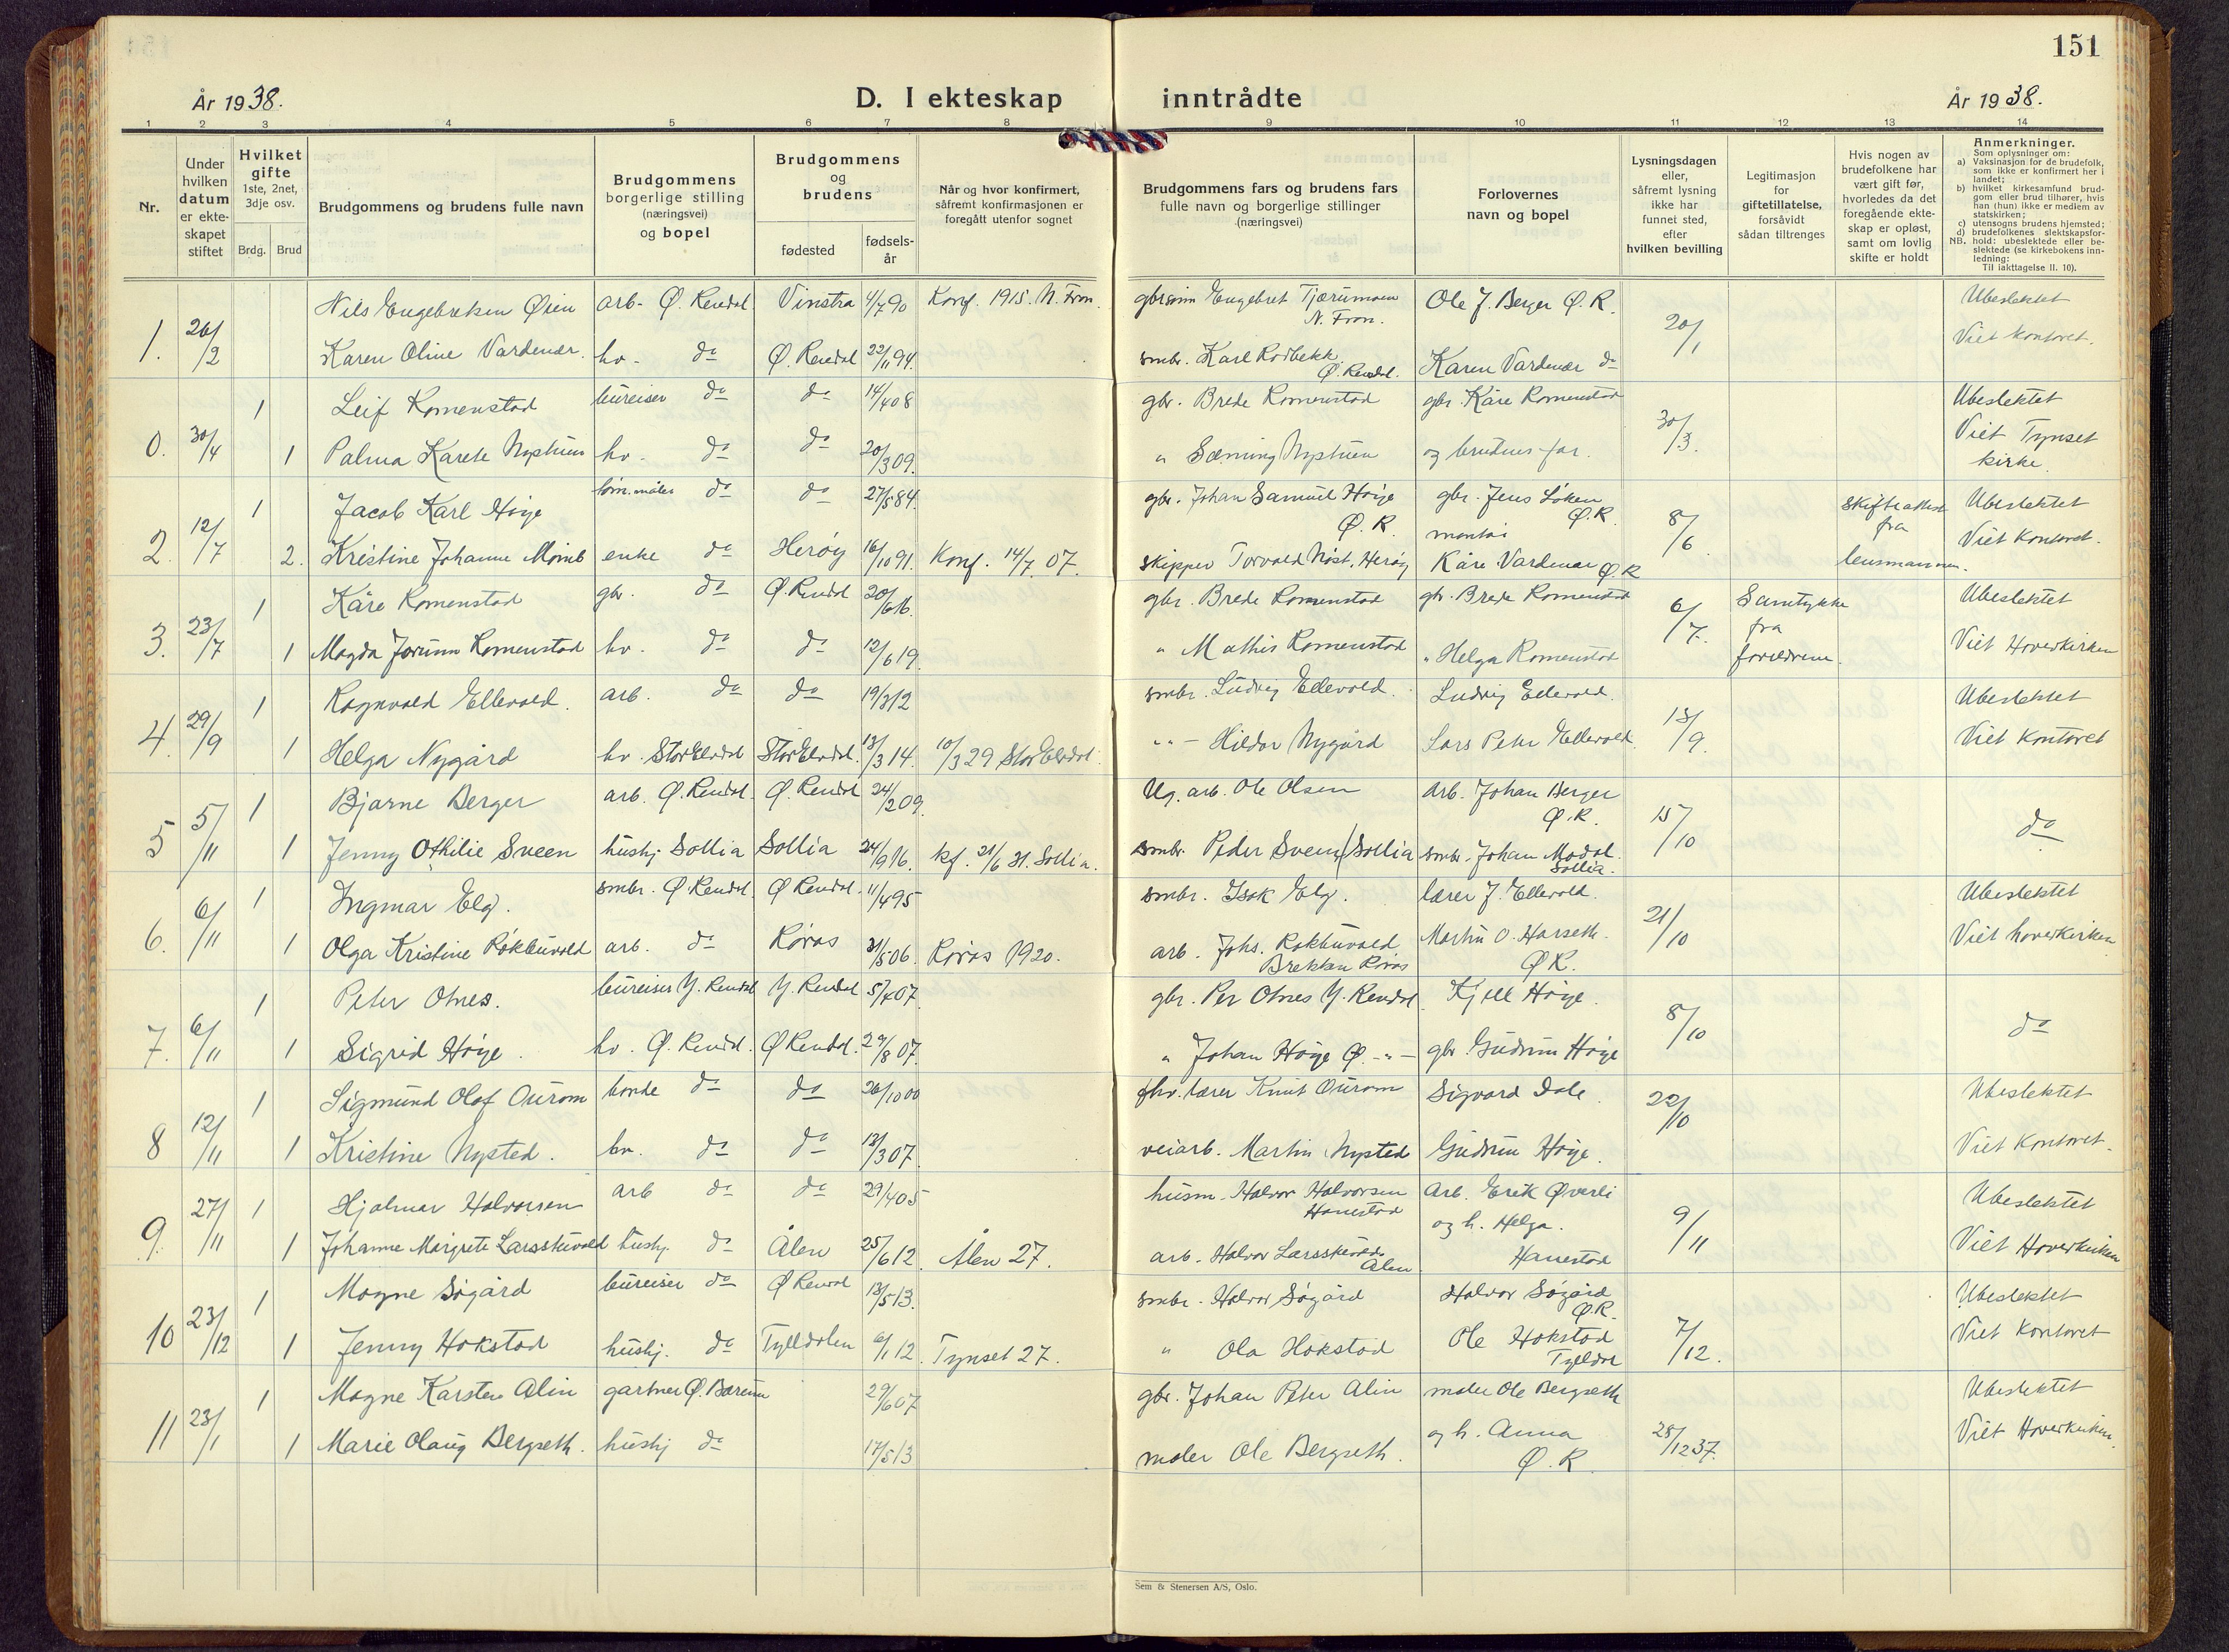 151
År 1938.
D. I ekteskap inntrådte
År 1938.
1 2 3 4 5 6 7 8 9 10 11 12 13 14
Nr.
Under hvilken datum er ekte-skapet stiftet
Hvilket gifte
1ste, 2net, 3dje osv.
Brdg. Brud
Brudgommens og brudens fulle navn
Brudgommens borgerlige stilling (næringsvei) og bopel
Brudgommens og brudens
fødested
fødsels-år
Når og hvor konfirmert, såfremt konfirmasjonen er foregått utenfor sognet
Brudgommens fars og brudens fars fulle navn og borgerlige stillinger (næringsvei)
Forlovernes navn og bopel
Lysningsdagen eller, såfremt lysning ikke har funnet sted, efter hvilken bevilling
Legitimasjon for giftetillatelse, forsåvidt sådan tiltrenges
Hvis nogen av brudefolkene har vært gift før, hvorledes da det foregående ekte-skap er opløst, samt om lovlig skifte er holdt
Anmerkninger.
Som oplysninger om:
a) Vaksinasjon for de brudefolk, som ikke er konfirmert her i landet;
b) hvilket kirkesamfund brud-gom eller brud tilhører, hvis han (hun) ikke er medlem av statskirken;
c) utensogns brudens hjemsted;
d) brudefolkenes slektskapsfor-hold: ubeslektede eller be-slektede (se kirkebokens inn-ledning:
NB.
Til iakttagelse II. 10).
1. 26/2 Nils Engebretsen Øien arb. Ø. Rendal Vinstra 4/7 90 Konf. 1915. N. Fron. Engebret Tjærumoen N. Fron. Ole J. Berger Ø. R. 20/1 Ubeslektet
Karen Oline Vardenær. hv. do Ø. Rendal 22/11 94. smbr. Karl Rodbekk Ø. Rendal. Karen Vardenær do Viet kontoret.
0. 30/4 1 Leif Romenstad bureiser do do 14/4 08 gbr. Brede Romenstad gbr. Kåre Romenstad 30/3. Ubeslektet
1 Palma Karete Nystuen hv. do do 20/3 09. " Sæming Nystuen og brudens far. Viet Tynset kirke.
2. 12/7 1 Jacob Karl Høye do do 27/5 84. gbr. Johan Samuel Høije Ø. R. gbr. Jens Løken Ø. R. 8/6 Skifteattest fra lensmannen. Ubeslektet
2. Kristine Johanne Momb enke do Herøy 16/10 91. Konf. 14/7. 07. skipper Torvald Nøst, Herøy montør Kåre Vardenær Ø R Viet Kontoret.
3. 23/7 1 Kåre Romenstad gbr. do Ø. Rendal 20/6 16. gbr. Brede Romenstad gbr. Brede Romenstad 6/7. Samtykke fra foreldrene. Ubeslektet
1 Magda Jorunn Romenstad hv. do do 12/6 19. " Mathis Romenstad " Helga Romenstad Viet Hoverkirken
4. 29/9 1 Ragnvald Ellevold. arb. do do 19/3 12 smbr. Ludvig Ellevold. Ludvig Ellevold. 13/9. Ubeslektet
1 Helga Nygård hv. Stor Elvdal Stor Elvdal. 13/3 14. 10/3 29 Stor Elvdal. " - Hildor Nygård Lars Peter Ellevold. Viet Kontoret
5 5/11 1 Bjarne Berger arb. Ø. Rendal. Ø. Rendal 24/2 09. Ug. arb. Ole Olsen arb. Johan Berger Ø. R. 15/10 do
1 Jenny Othilie Sveen hushj Sollia Sollia 24/9 16. kf. 21/6 31. Sollia. smbr. Peder Sveen Sollia smbr. Johan Modal. Sollia.
6. 6/11 1 Ingmar Elg. smbr. Ø. Rendal. Ø Rendal. 11/4 95 smbr. Isak Elg. lærer J. Ellevold. 21/10 Ubeslektet
1 Olga Kristine Røkbuvold arb. do Røros 31/5 06. Røros 1920. arb. Johs. Rokbuvold Brekken Røros Martin O. Harseth. Ø R. Viet hoverkirken
7. 6/11 1 Peter Otnes. bureiser Y. Rendal Y. Rendal 5/4 07. gbr. Per Otnes Y. Rendal Kjell Høye. 8/10 do
1 Sigrid Høye. hv. Ø. Rendal. Ø Rendal. 29/8 07. " Johan Høye Ø. - " - gbr. Gudrun Høye
8 12/11 1 Sigmund Olaf Ourom bonde do do 26/10 00 fhv. lærer Knut Ourom Sigvard Dale. 22/10 Ubeslektet
1 Kristine Nysted. hv. do do 13/3 07. veiarb. Martin Nysted Gudrun Høye. Viet Kontoret.
9. 27/11 1 Hjalmar Halvorsen arb do do 29/4 05 husm. Halvor Halvorsen Hanestad Arb. Erik Øverli og h. Helga. Hanestad 9/11 Ubeslektet
1 Johanne Margrete Larsskuvold hushj. do Ålen 25/6 12. Ålen 27. arb. Halvor Larsskuvold Ålen. Viet Hoverkirken
10 23/12 1 Magne Søgård bureiser do Ø Rendal 13/5 13. smbr. Halvor Søgård Halvor Søgård Ø. R. 7/12. Ubeslektet
1 Jenny Hokstad hushj. do Tylldalen 6/1 12. Tynset 27. " Ola Hokstad Ole Hokstad Tylldal Viet Kontoret
11 23/1 1 Magne Karsten Alin gartner Ø. Bærum 29/6 07 gbr. Johan Peter Alin maler Ole Bergseth 28/12 37. Ubeslektet
1 Marie Olaug Bergseth. hushj do 17/5 13 maler Ole Bergseth. og h. Anna Ø. R. Viet Hoverkirken.
Sem & Stenersen A/S, Oslo.